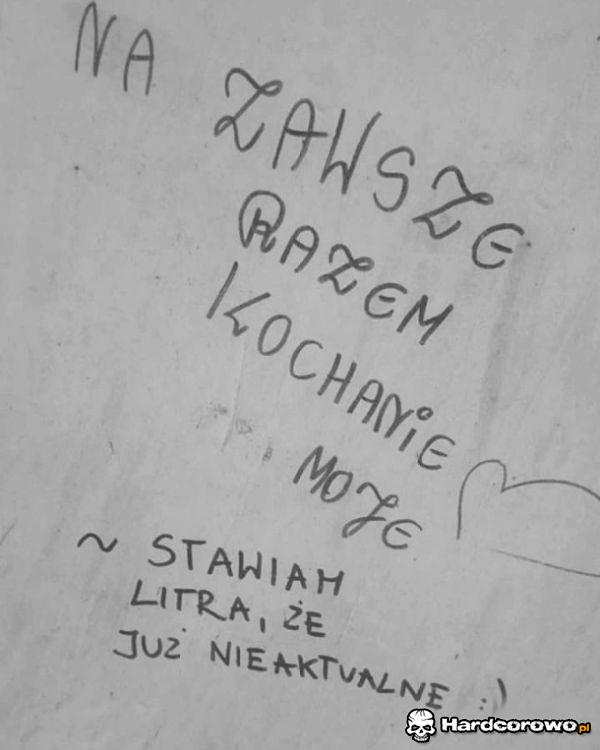 NA ZAWSZE
RAZEM
KOCHANIE
MOJE
~ STAWIAM
LITRA, ŻE
JUŻ NIEAKTUALNE :)
Hardcorowo.pl